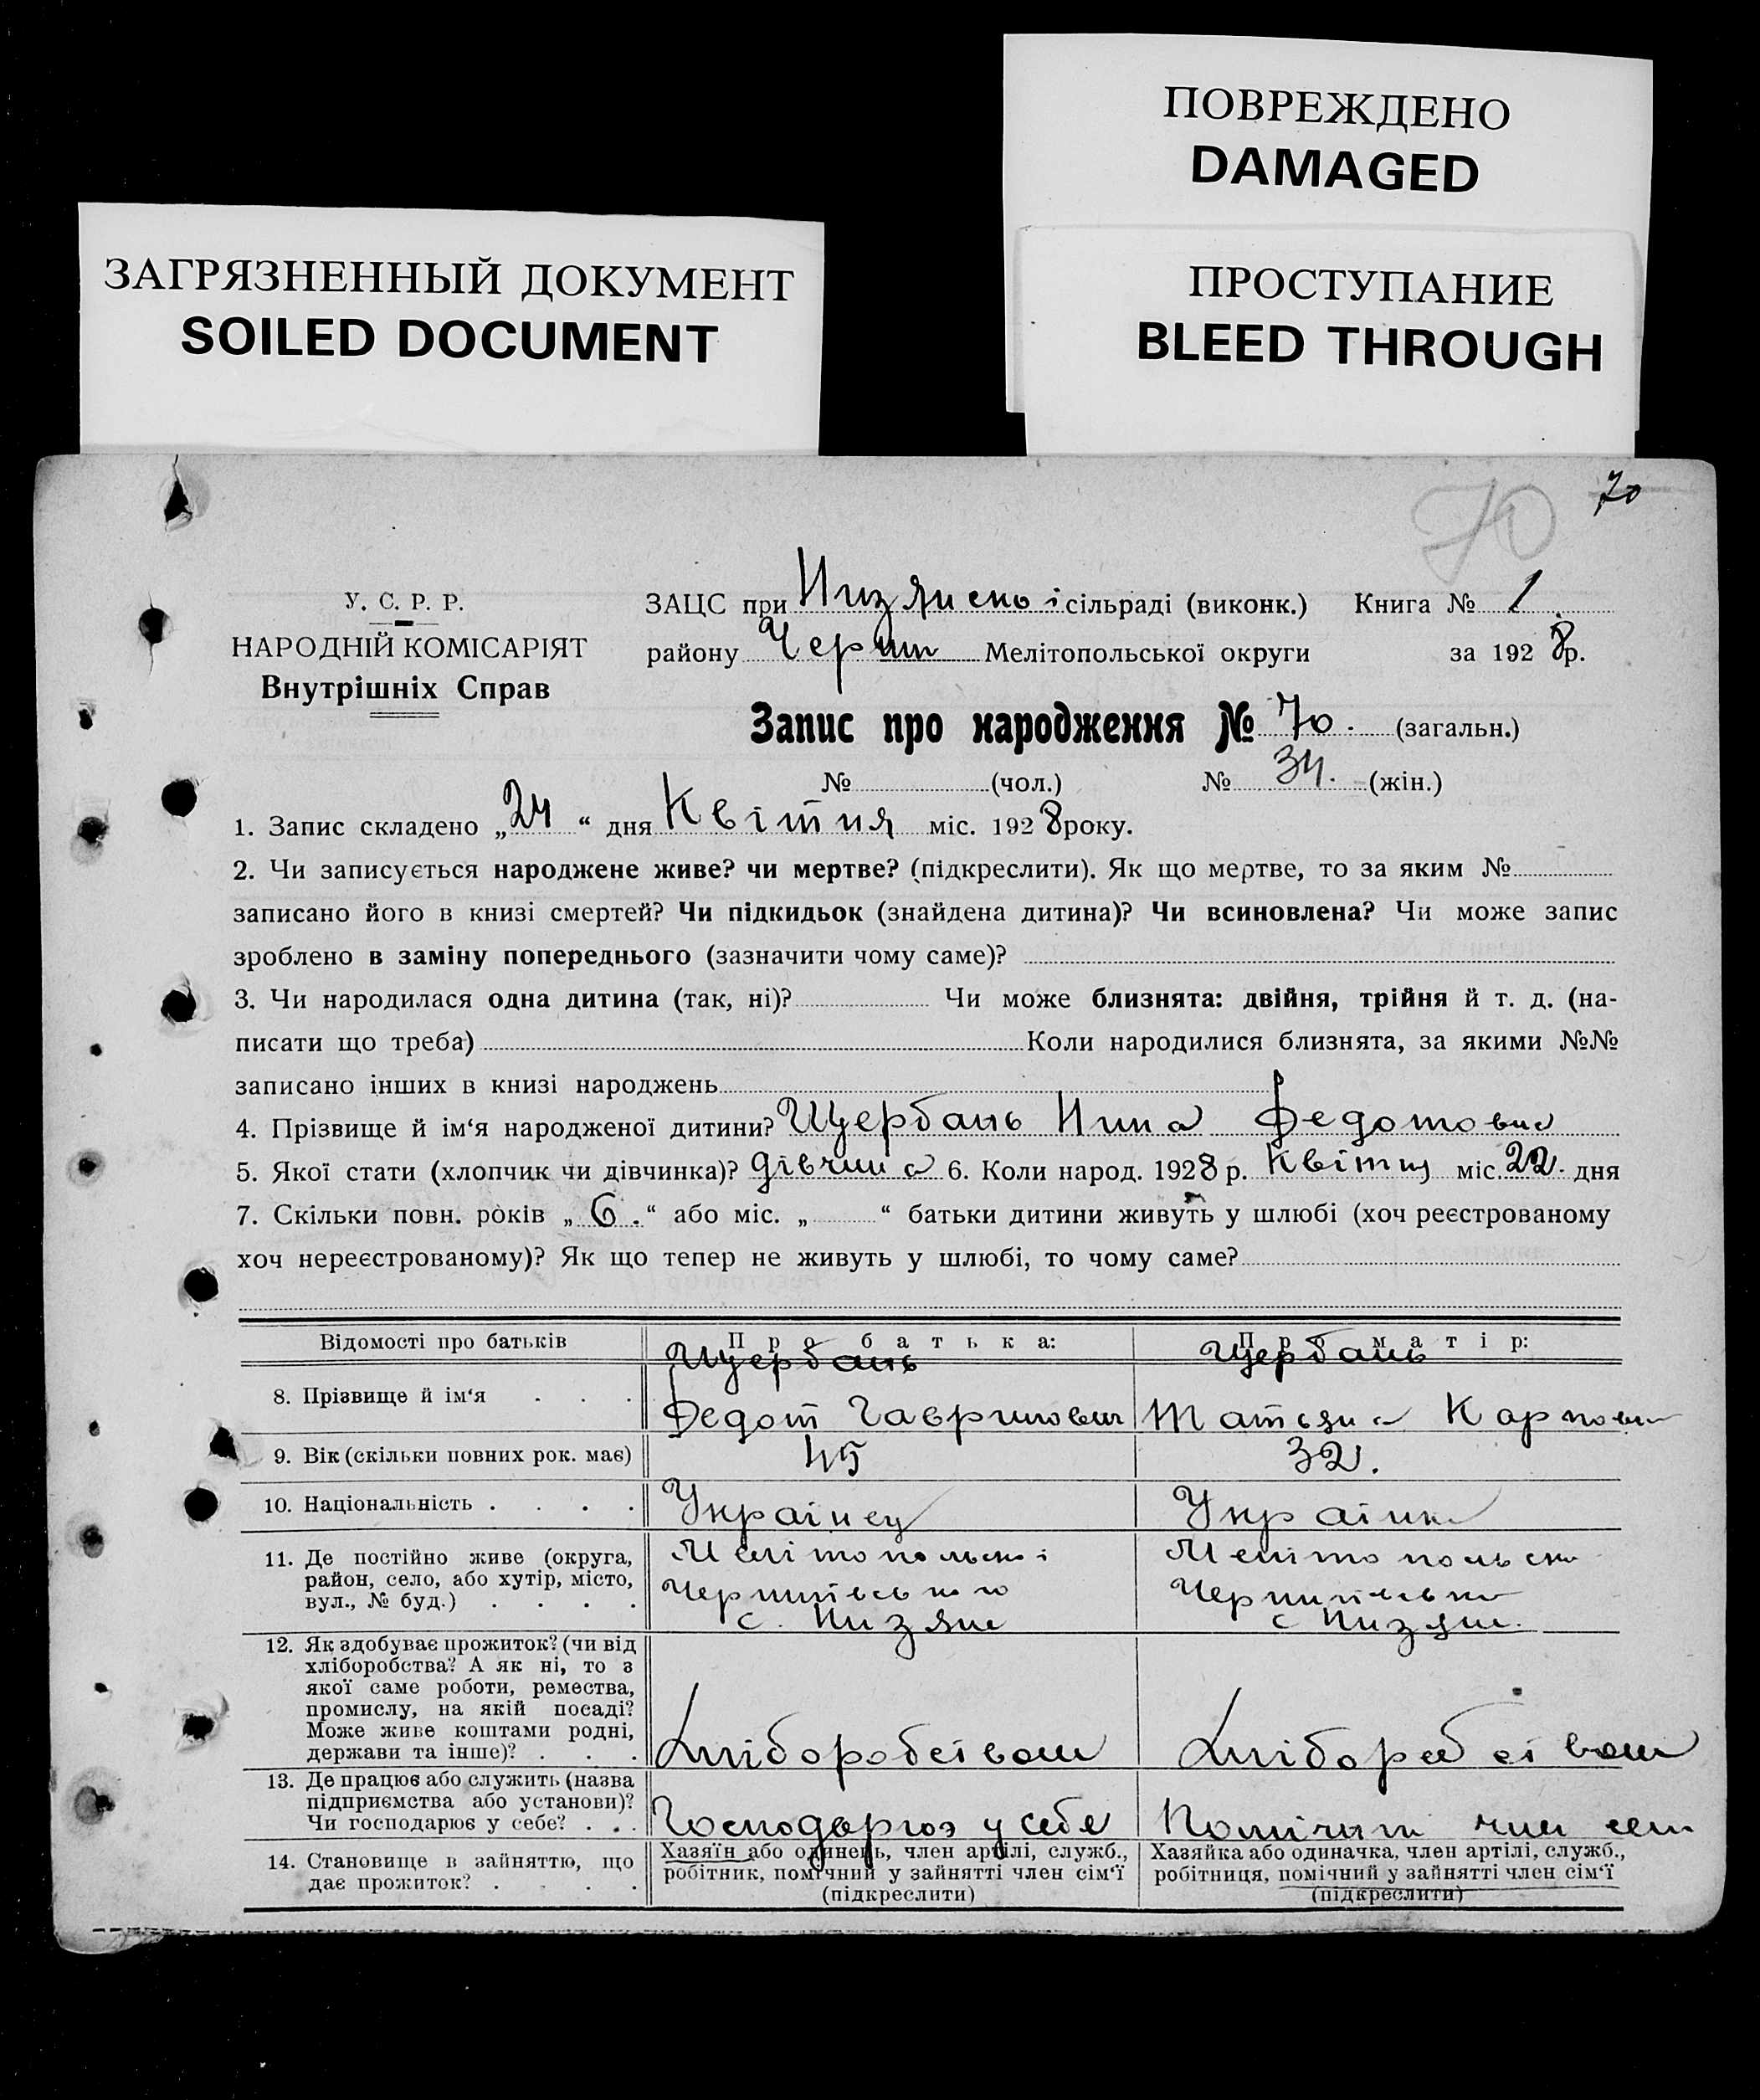 ПОВРЕЖДЕНО
DAMAGED
ЗАГРЯЗНЕННЫЙ ДОКУМЕНТ
SOILED DOCUMENT
ПРОСТУПАНИЕ
BLEED THROUGH
70
70
У. С. Р. Р.
НАРОДНІЙ КОМІСАРІЯТ
Внутрішніх Справ
ЗАЦС при сільраді (виконк.) Книга № 1
району Черниг Мелітопольської округи за 1928р.
Запис про народження № 70. (загальн.)
№ (чол.) № 34. (жін.)
1. Запис складено „24“ дня Квітня міс. 1928 року.
2. Чи записується народжене живе? чи мертве? (підкреслити). Як що мертве, то за яким №
записано його в книзі смертей? Чи підкидьок (знайдена дитина)? Чи всиновлена? Чи може запис
зроблено в заміну попереднього (зазначити чому саме)?
3. Чи народилася одна дитина (так, ні)? Чи може близнята: двійня, трійня й т. д. (на-
писати що треба) Коли народилися близнята, за якими №№
записано інших в книзі народжень
4. Прізвище й ім‘я народженої дитини? Щербань Нина Федотовна
5. Якої стати (хлопчик чи дівчинка)? дівчина 6. Коли народ. 1928 р. Квітня міс. 22. дня
7. Скільки повн. років „6.“ або міс. „ “ батьки дитини живуть у шлюбі (хоч реєстрованому
хоч нереєстрованому)? Як що тепер не живуть у шлюбі, то чому саме?
Відомості про батьків Про батька: Про матір:
8. Прізвище й ім‘я . . .
Щербань
Федот Гаврилович
Щербань
Татьяна Карповна
9. Вік (скільки повних рок. має) 45 32.
10. Національність . . . . Українец Українка
11. Де постійно живе (округа,
район, село, або хутір, місто,
вул., № буд.) . . . .
Мелітопольскої
Чернигівського
с. Низяне
Мелітопольско
Чернигівсько
с Низяне.
12. Як здобуває прожиток? (чи від
хліборобства? А як ні, то з
якої саме роботи, ремества,
промислу, на якій посаді?
Може живе коштами родні,
держави та інше)? . . .
Хліборобством Хліборобством
13. Де працює або служить (назва
підприємства або установи)?
Чи господарює у себе? . . .
Господарює у себе
14. Становище в зайняттю, що
дає прожиток? . . . .
Хазяїн або одинець, член артілі, служб.,
робітник, помічний у зайнятті член сім‘ї
(підкреслити)
Хазяйка або одиначка, член артілі, служб.,
робітниця, помічний у зайнятті член сім‘ї
(підкреслити)